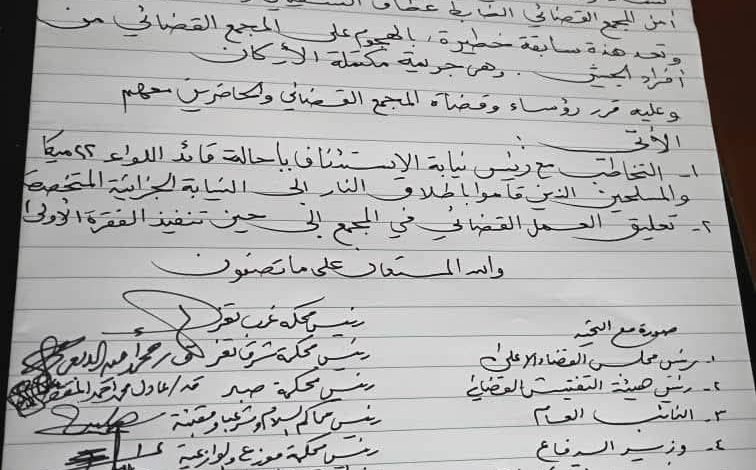 أمن المجمع القضائي الضابط
وتعد هذه سابقة خطيرة، الهجوم على المجمع القضائي من
أفراد الجيش. وهي جريمة مكتملة الأركان
وعليه قرر رؤساء وقضاة المجمع القضائي والحاضرين معهم
الآتي :
١- التخاطب مع رئيس نيابة الاستئناف بإحالة قائد اللواء ٢٢ ميكا
والمسلحين الذين قاموا بإطلاق النار إلى النيابة الجزائية المتخصصة
٢- تعليق العمل القضائي في المجمع إلى حين تنفيذ الفقرة الأولى
والله المستعان على ما تصفون
صورة مع التحية
١. رئيس مجلس القضاء الأعلى
٢- رئيس هيئة التفتيش القضائي
٣. النائب العام
٤- وزير الدفاع
رئيس محكمة غرب تعز
رئيس محكمة شرق تعز
رئيس محكمة صبر
رئيس محاكم السلام وشرعبا ومقبنة
رئيس محكمة موزع والوازعية